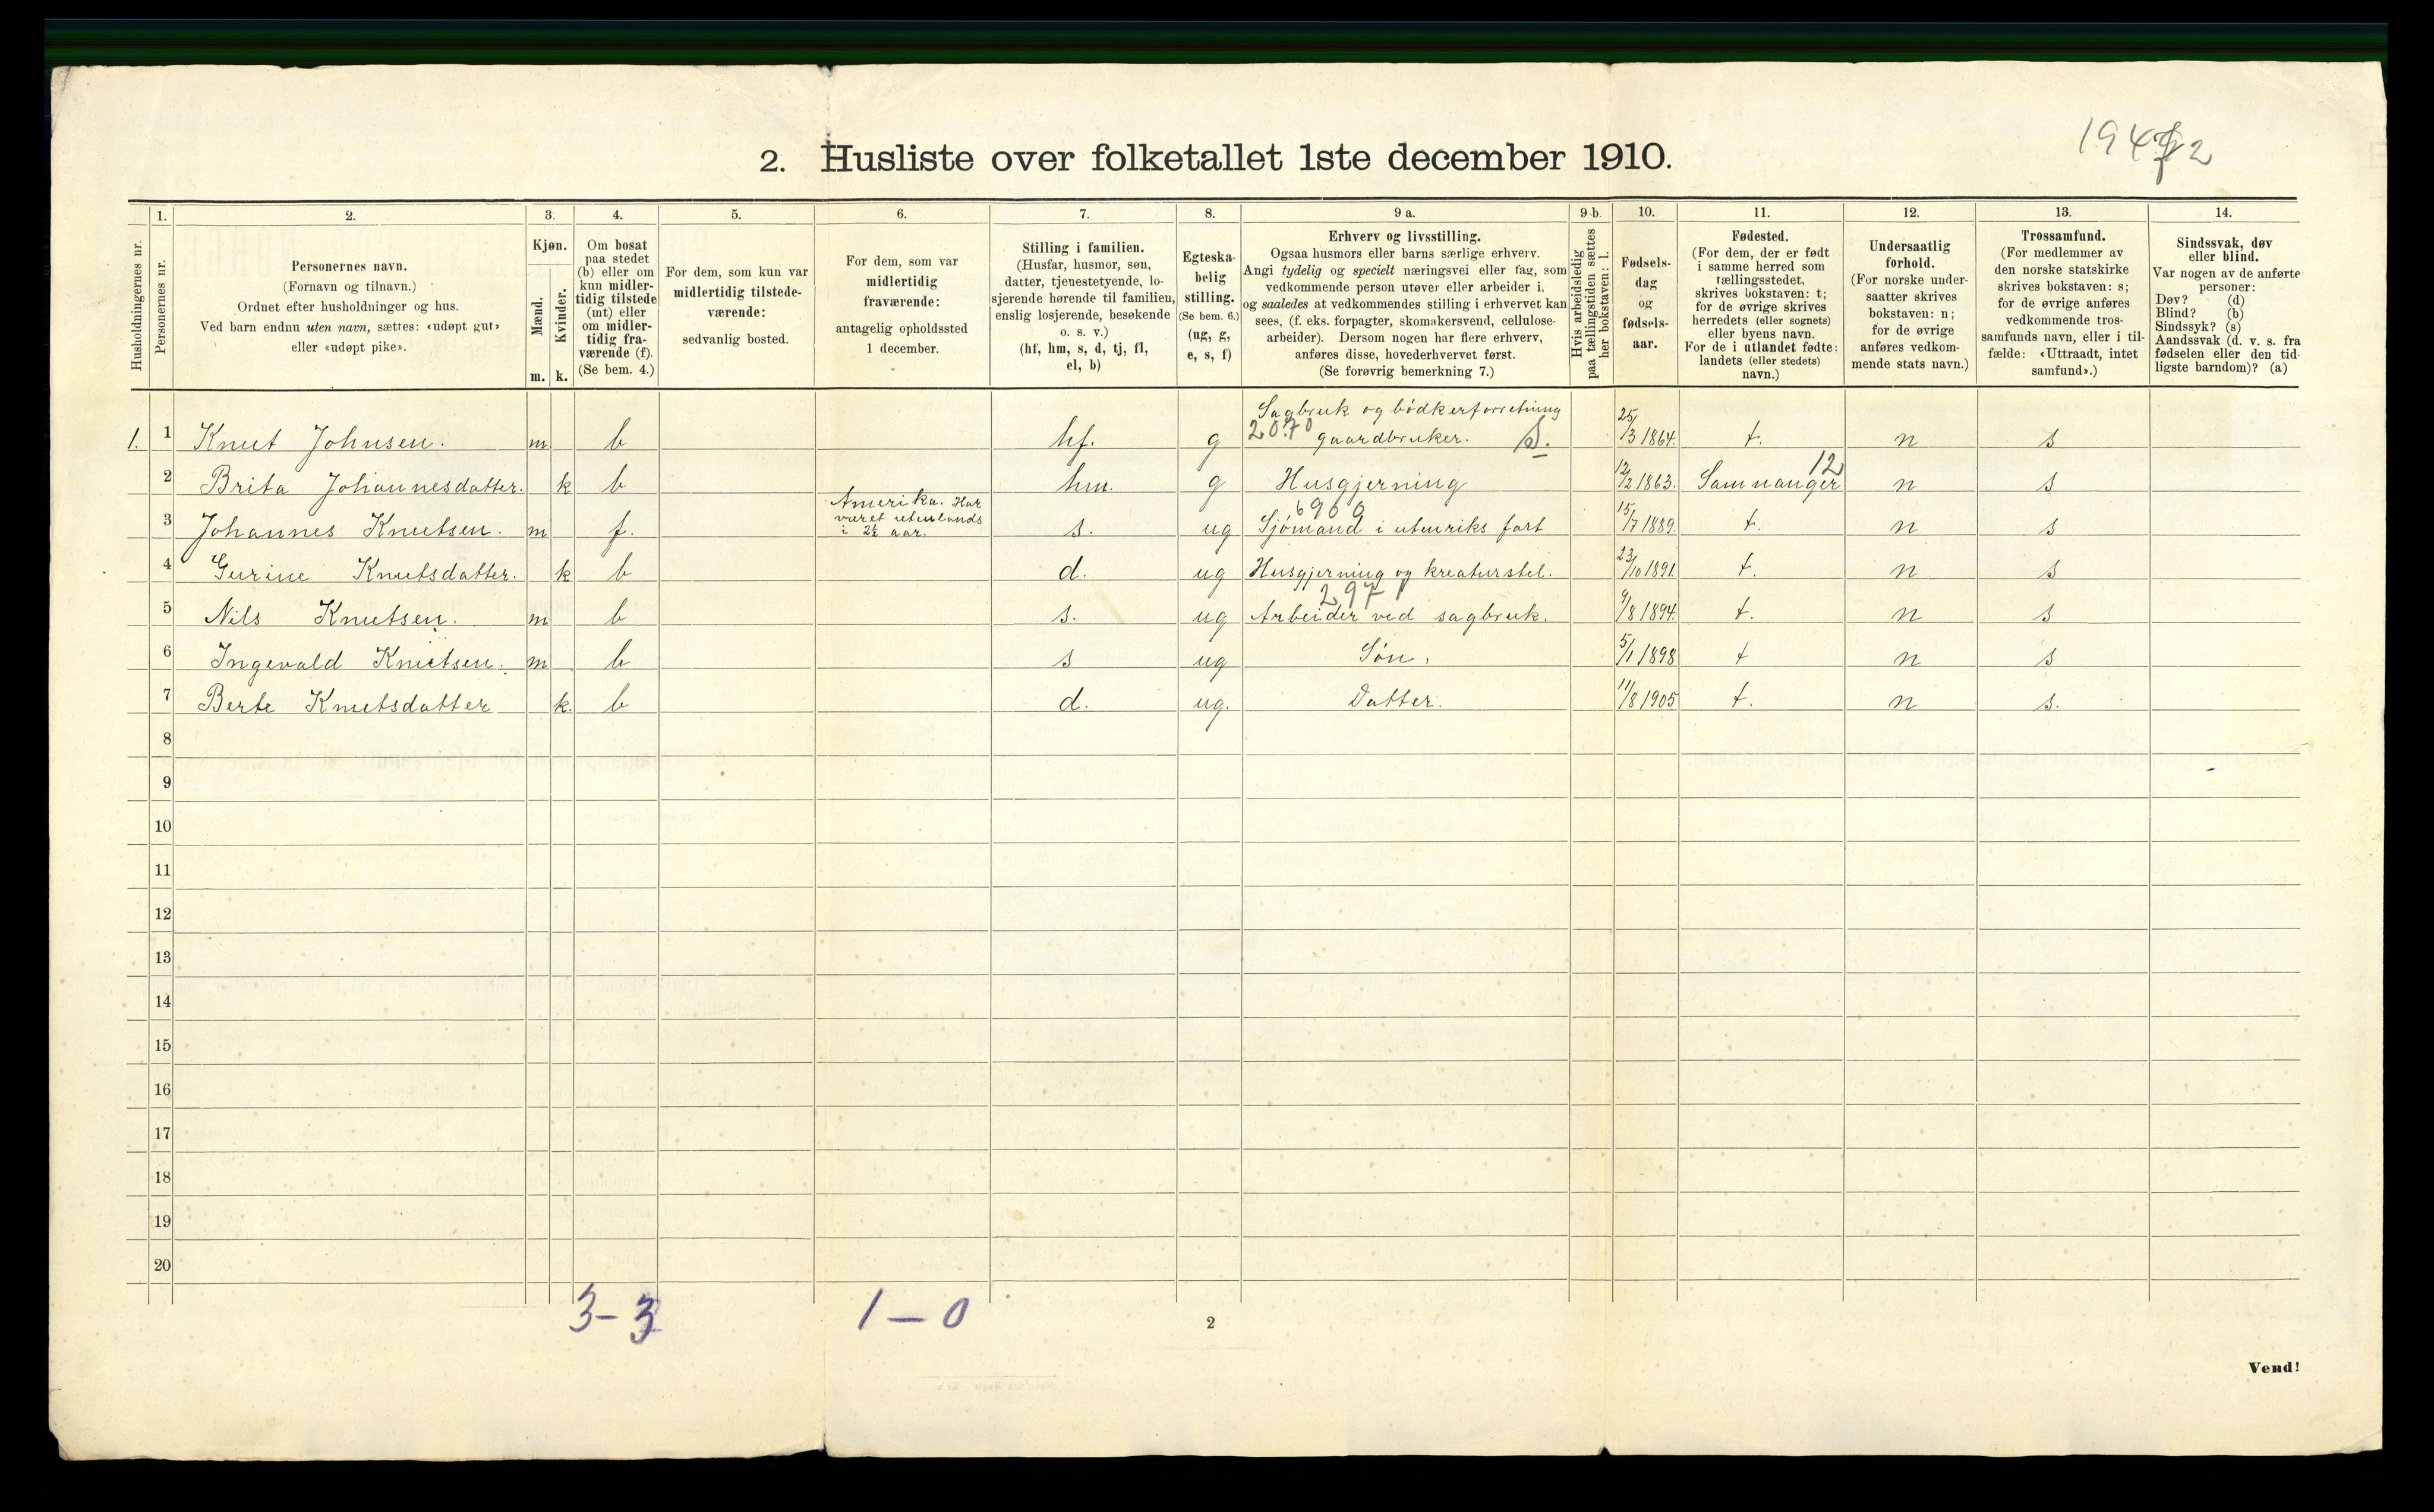 19472
2. Husliste over folketallet 1ste december 1910.
Husholdningernes nr.
1.
Personernes nr.
2.
Personernes navn.
(Fornavn og tilnavn.)
Ordnet efter husholdninger og hus.
Ved barn endnu uten navn, sættes: «udøpt gut»
eller «udøpt pike».
3.
Kjøn.
Mænd.
Kvinder.
m. k.
4.
Om bosat
paa stedet
(b) eller om
kun midler-
tidig tilstede
(mt) eller
om midler-
tidig fra-
værende (f).
(Se bem. 4.)
5.
For dem, som kun var
midlertidig tilstede-
værende:
sedvanlig bosted.
6.
For dem, som var
midlertidig
fraværende:
antagelig opholdssted
1 december.
7.
Stilling i familien.
(Husfar, husmor, søn,
datter, tjenestetyende, lo-
sjerende hørende til familien,
enslig losjerende, besøkende
o. s. v.)
(hf, hm, s, d, tj, fl,
el, b)
8.
Egteska-
belig
stilling.
(Se bem. 6.)
(ug, g,
e, s, f)
9 a.
Erhverv og livsstilling.
Ogsaa husmors eller barns særlige erhverv.
Angi tydelig og specielt næringsvei eller fag, som
vedkommende person utøver eller arbeider i,
og saaledes at vedkommendes stilling i erhvervet kan
sees, (f. eks. forpagter, skomakersvend, cellulose-
arbeider). Dersom nogen har flere erhverv,
anføres disse, hovederhvervet først.
(Se forøvrig bemerkning 7.)
9 b.
Hvis arbeidsledig
paa tællingstiden sættes
her bokstaven: l.
10.
Fødsels-
dag
og
fødsels-
aar.
11.
Fødested.
(For dem, der er født
i samme herred som
tællingsstedet,
skrives bokstaven: t;
for de øvrige skrives
herredets (eller sognets)
eller byens navn.
For de i utlandet fødte:
landets (eller stedets)
navn.)
12.
Undersaatlig
forhold.
(For norske under-
saatter skrives
bokstaven: n;
for de øvrige
anføres vedkom-
mende stats navn.)
13.
Trossamfund.
(For medlemmer av
den norske statskirke
skrives bokstaven: s;
for de øvrige anføres
vedkommende tros-
samfunds navn, eller i til-
fælde: «Uttraadt, intet
samfund».)
14.
Sindssvak, døv
eller blind.
Var nogen av de anførte
personer:
Døv? (d)
Blind? (b)
Sindssyk? (s)
Aandssvak (d. v. s. fra
fødselen eller den tid-
ligste barndom)? (a)
Sagbruk og bödkerforretning
1. 1 Knut Johnsen. m b hf. g 20.70 gaardbruker. S. 25/3 1864. t. n s
2 Brita Johannesdatter. k b hm. g Husgjerning 12/2 1863. Samnanger 12 n s
Amerika. Har
været utenlands
i 2½ aar.
6900
3 Johannes Knutsen. m f. s. ug Sjömand i utenriks fart 15/7 1889. t. n s
4 Gurine Knutsdatter. k b d. ug Husgjerning og kreaturstel. 23/10 1891. t. n s
297
5 Nils Knutsen. m b s. ug Arbeider ved sagbruk. 9/8 1894. t. n s
6 Ingevald Knutsen. m b s ug Sön. 5/1 1898 t n s
7 Berte Knutsdatter k. b d. ug. Datter. 11/8 1905 t. n s.
8
9
10
11
12
13
14
15
16
17
18
19
20
3-3 1-0
2
Vend!